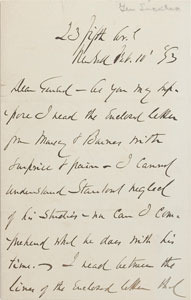 23 Fifth Av.
New York Feb. 10' 83
Dear Girard — As you may sup-
pose I read the Enclosed letter
from & Barnes with
surprise & pain — I Cannot
understand neglect
of his Studies — nor Can I Com-
prehend what he does with his
time. — I read between the
lines of the Enclosed letter that